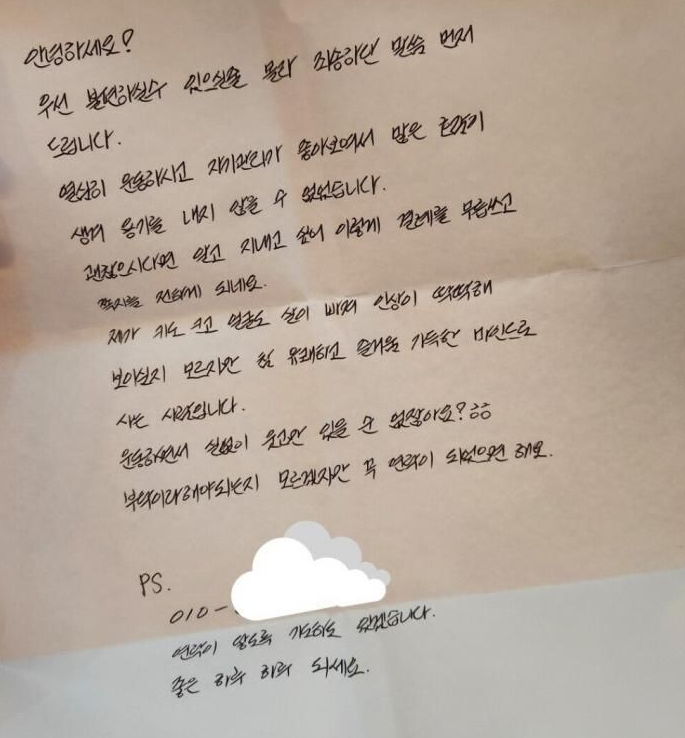 안녕하세요!
우선 불편하실수 있으실을 몰라 죄송하단 말씀 먼저
드립니다.
열심히 운동하시고 자기관리가 좋아보여서 많은 호감이
생겨 용기를 내지 않을 수 없었습니다.
괜찮으시다면 알고 지내고 싶어 이렇게 결례를 무릅쓰고
쪽지를 전하게 되네요.
제가 키도 크고 얼굴도 살이 빠져 인상이 딱딱해
보이실지 모르지만 참 유쾌하고 즐거움 가득한 마인드로
사는 사람입니다.
운동하면서 실없이 웃고만 있을 순 없잖아요? ㅎㅎ
부탁이라해야되는지 모르겠지만 꼭 연락이 되었으면 해요.
PS.
010-
연락이 닿도록 기도하고 있겠습니다.
좋은 하루 하루 되세요.